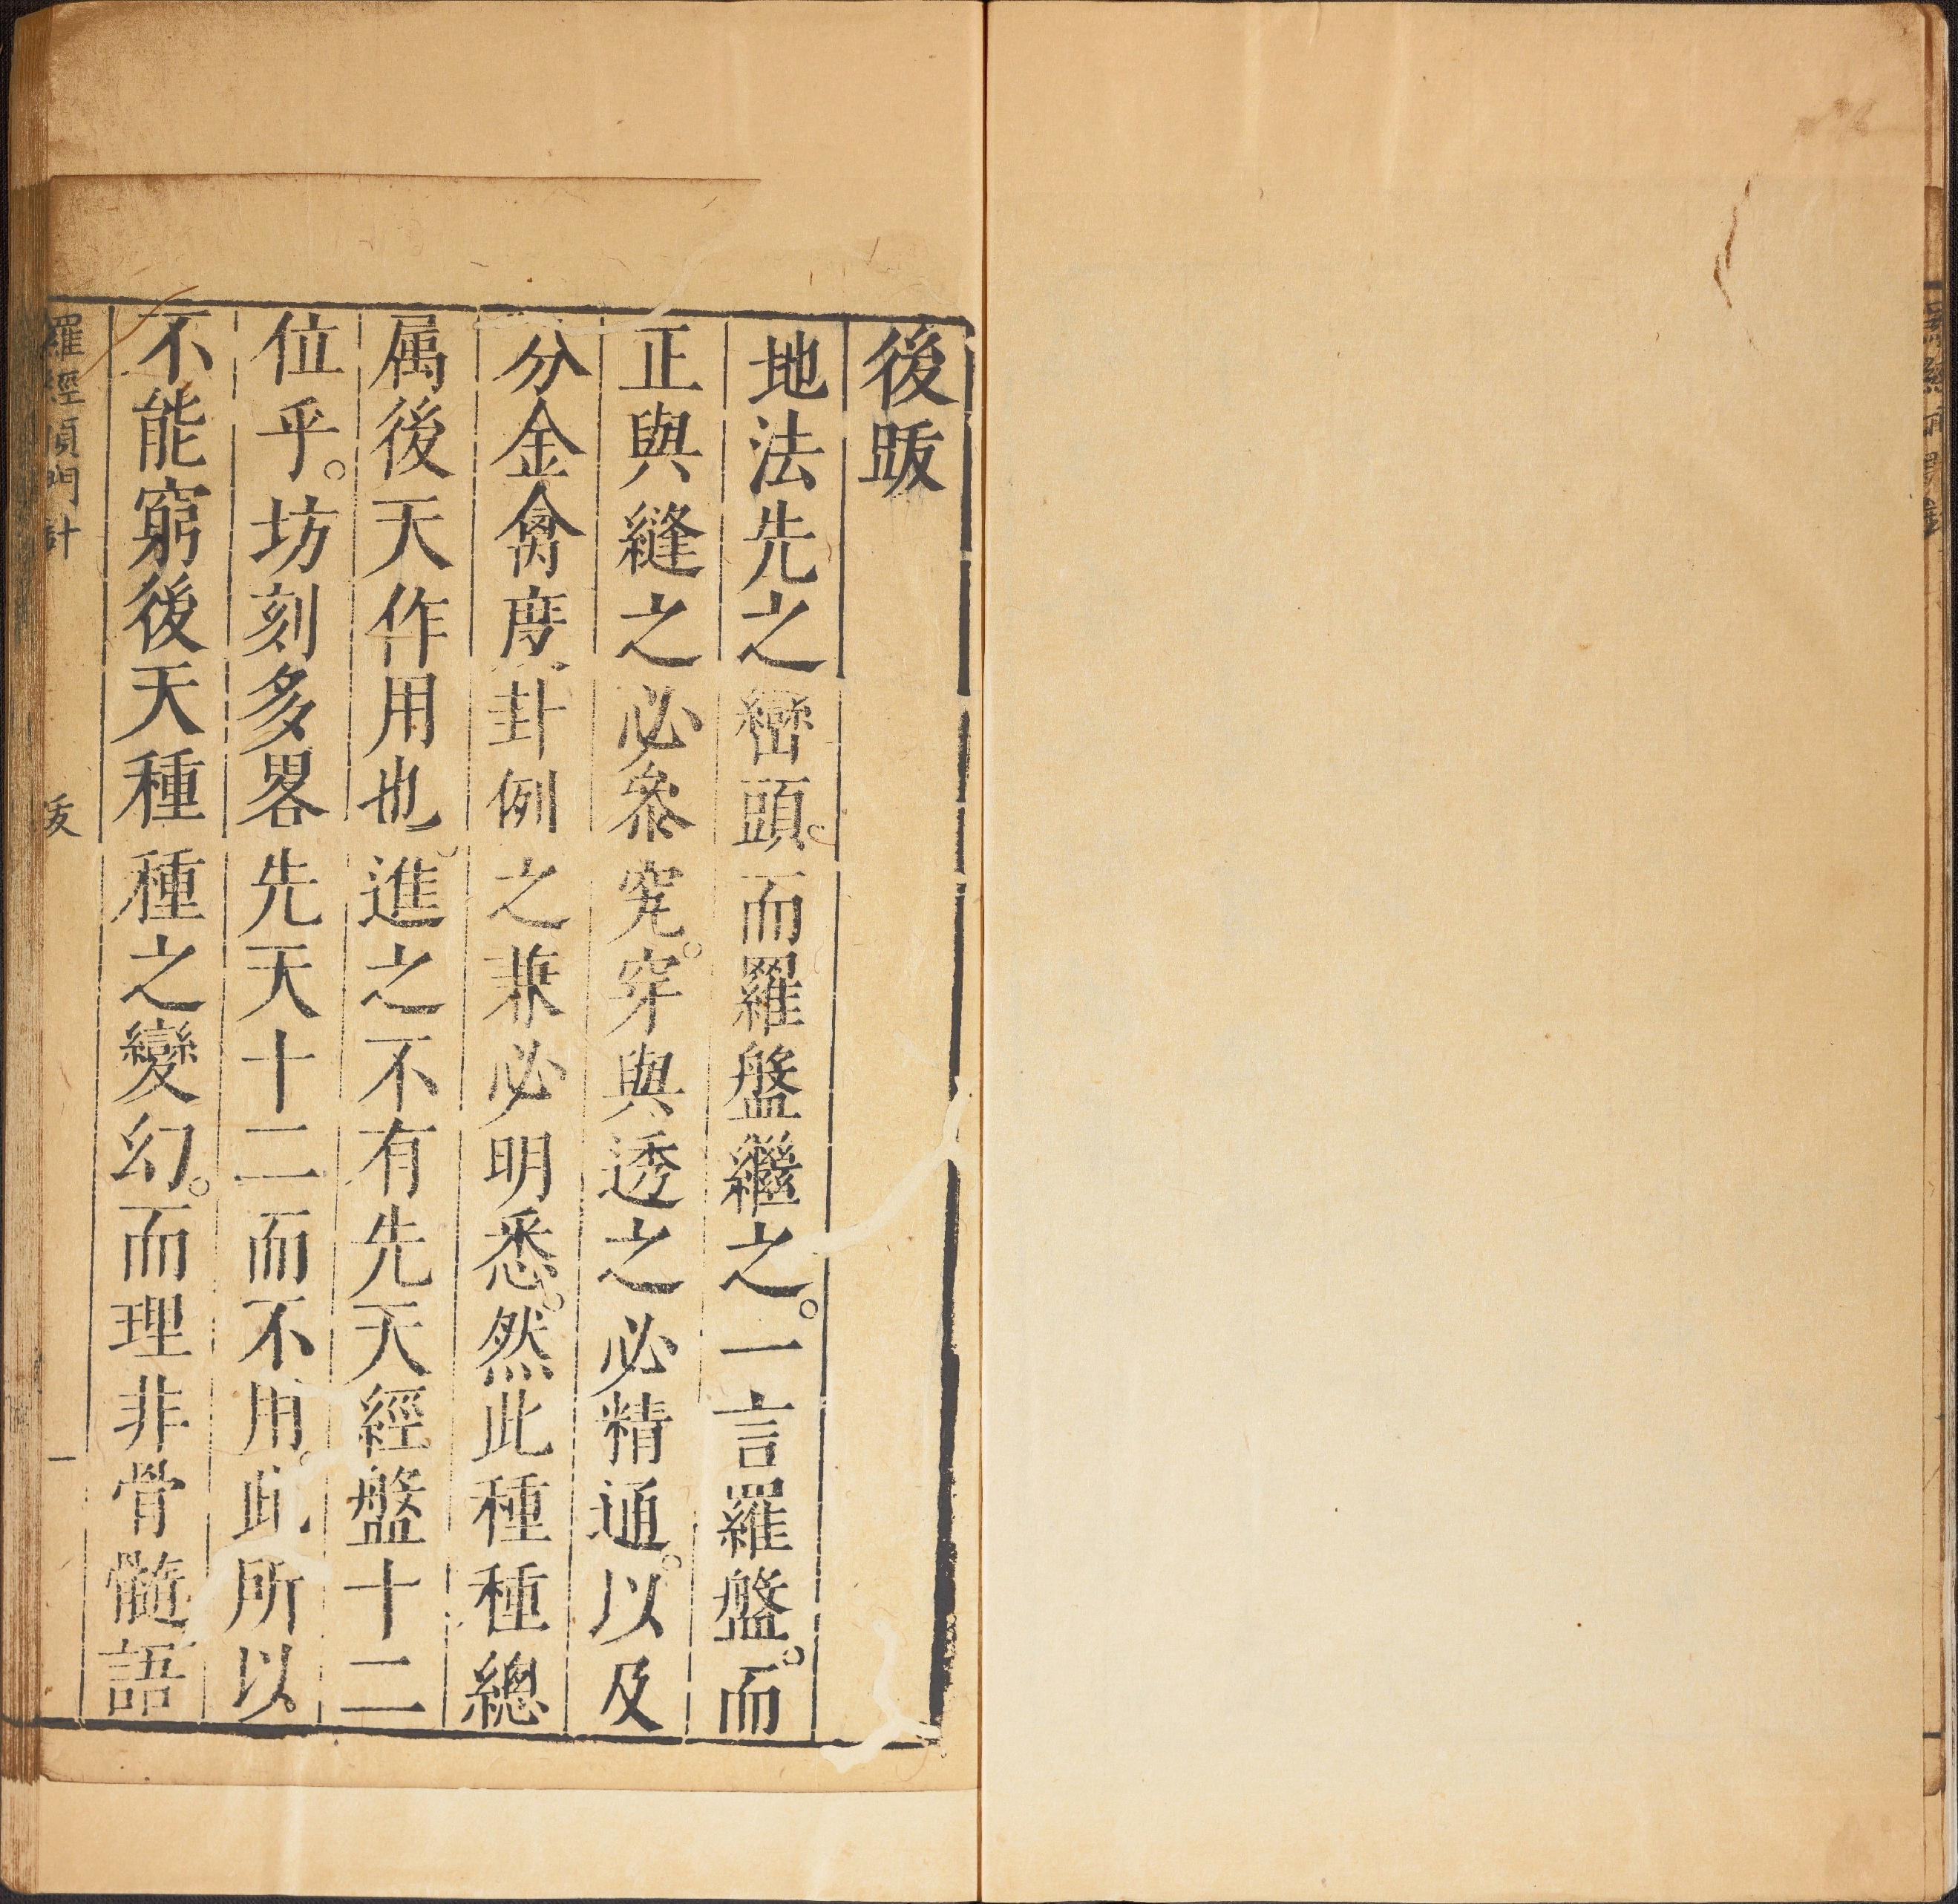 後跋
地法先之巒頭。而羅盤繼之。一言羅盤。而
正與縫之必叅究。穿與透之必精通。以及
分金禽度卦例之兼必明悉。然此種種總
属後天作用也。進之不有先天經盤十二
位乎。坊刻多畧先天十二而不用。此所以
不能窮後天種種之變幻。而理非骨髓語
羅經頂門針
一